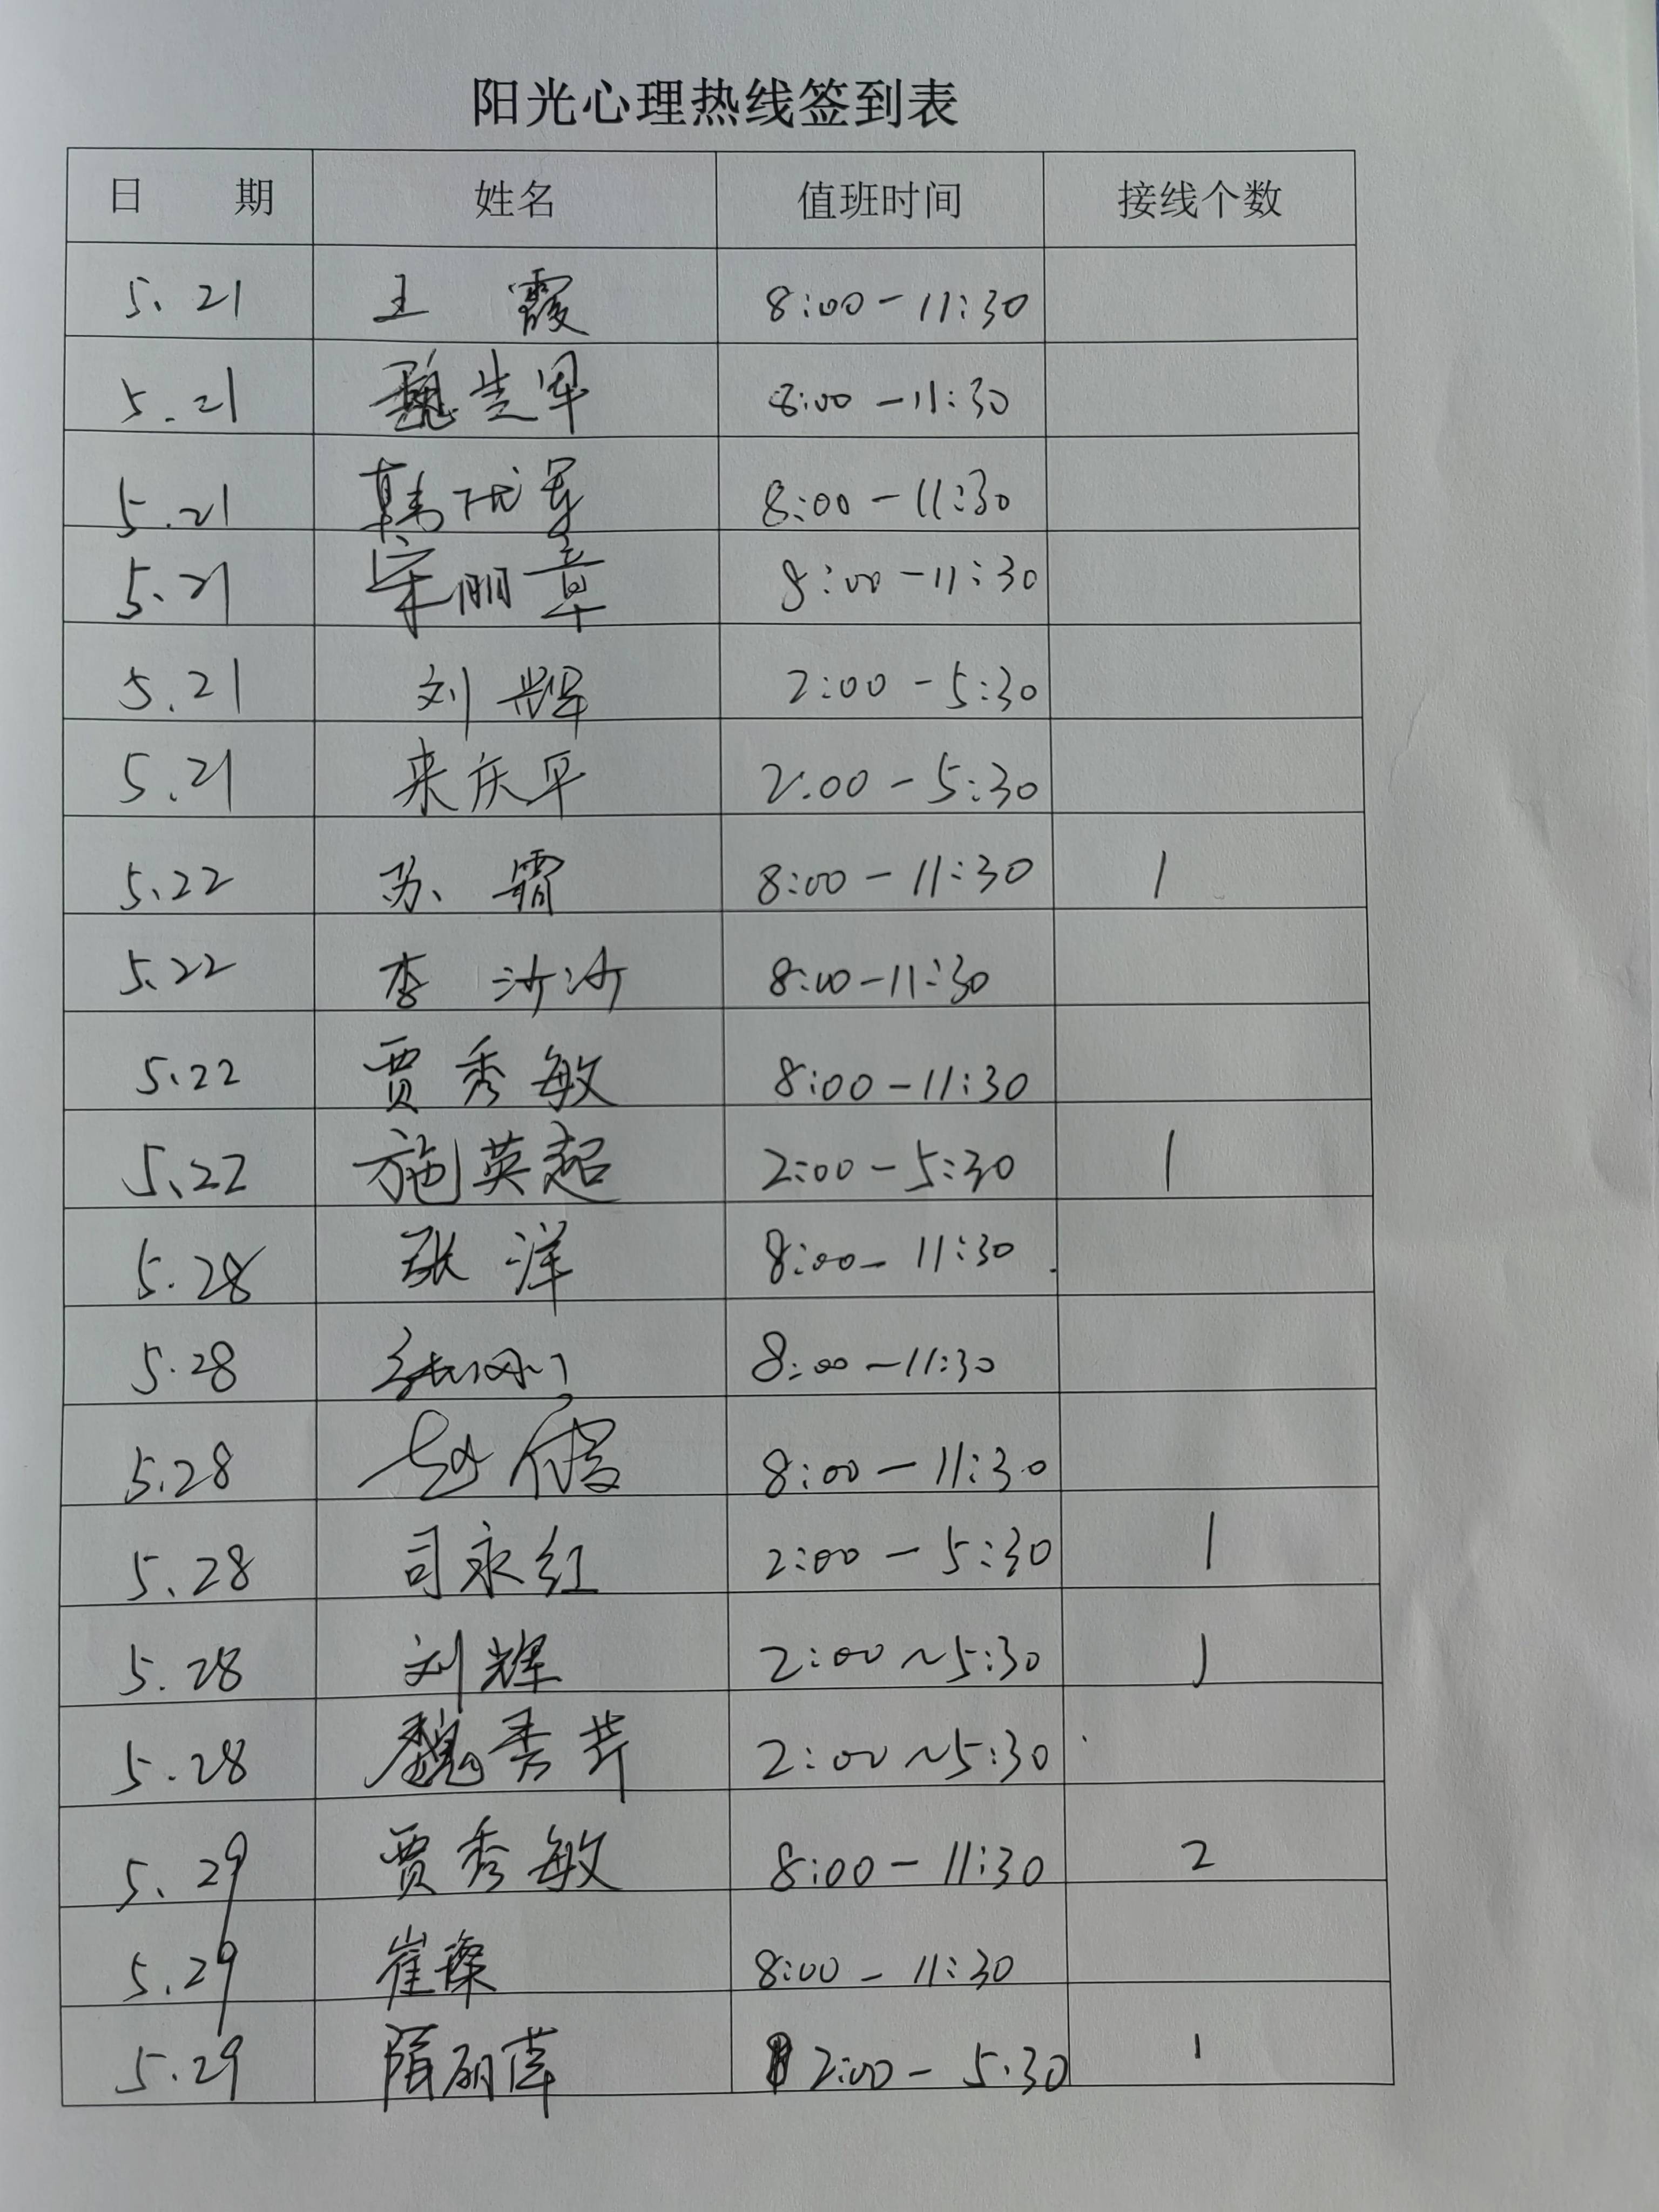 阳光心理热线签到表
日 期 姓名 值班时间 接线个数
5.21 王霞 8:00-11:30
5.21 魏先军 8:00-11:30
5.21 韩优军 8:00-11:30
5.21 宋丽章 8:00-11:30
5.21 刘辉 2:00-5:30
5.21 来庆平 2:00-5:30
5.22 苏霜 8:00-11:30 1
5.22 李沙沙 8:00-11:30
5.22 贾秀敏 8:00-11:30
5.22 施英超 2:00-5:30 1
5.28 张洋 8:00-11:30
5.28 8:00-11:30
5.28 赵 8:00-11:30
5.28 司永红 2:00-5:30 1
5.28 刘辉 2:00~5:30 1
5.28 魏秀芹 2:00~5:30
5.29 贾秀敏 8:00-11:30 2
5.29 崔璨 8:00-11:30
5.29 隋丽萍 2:00-5.30 1